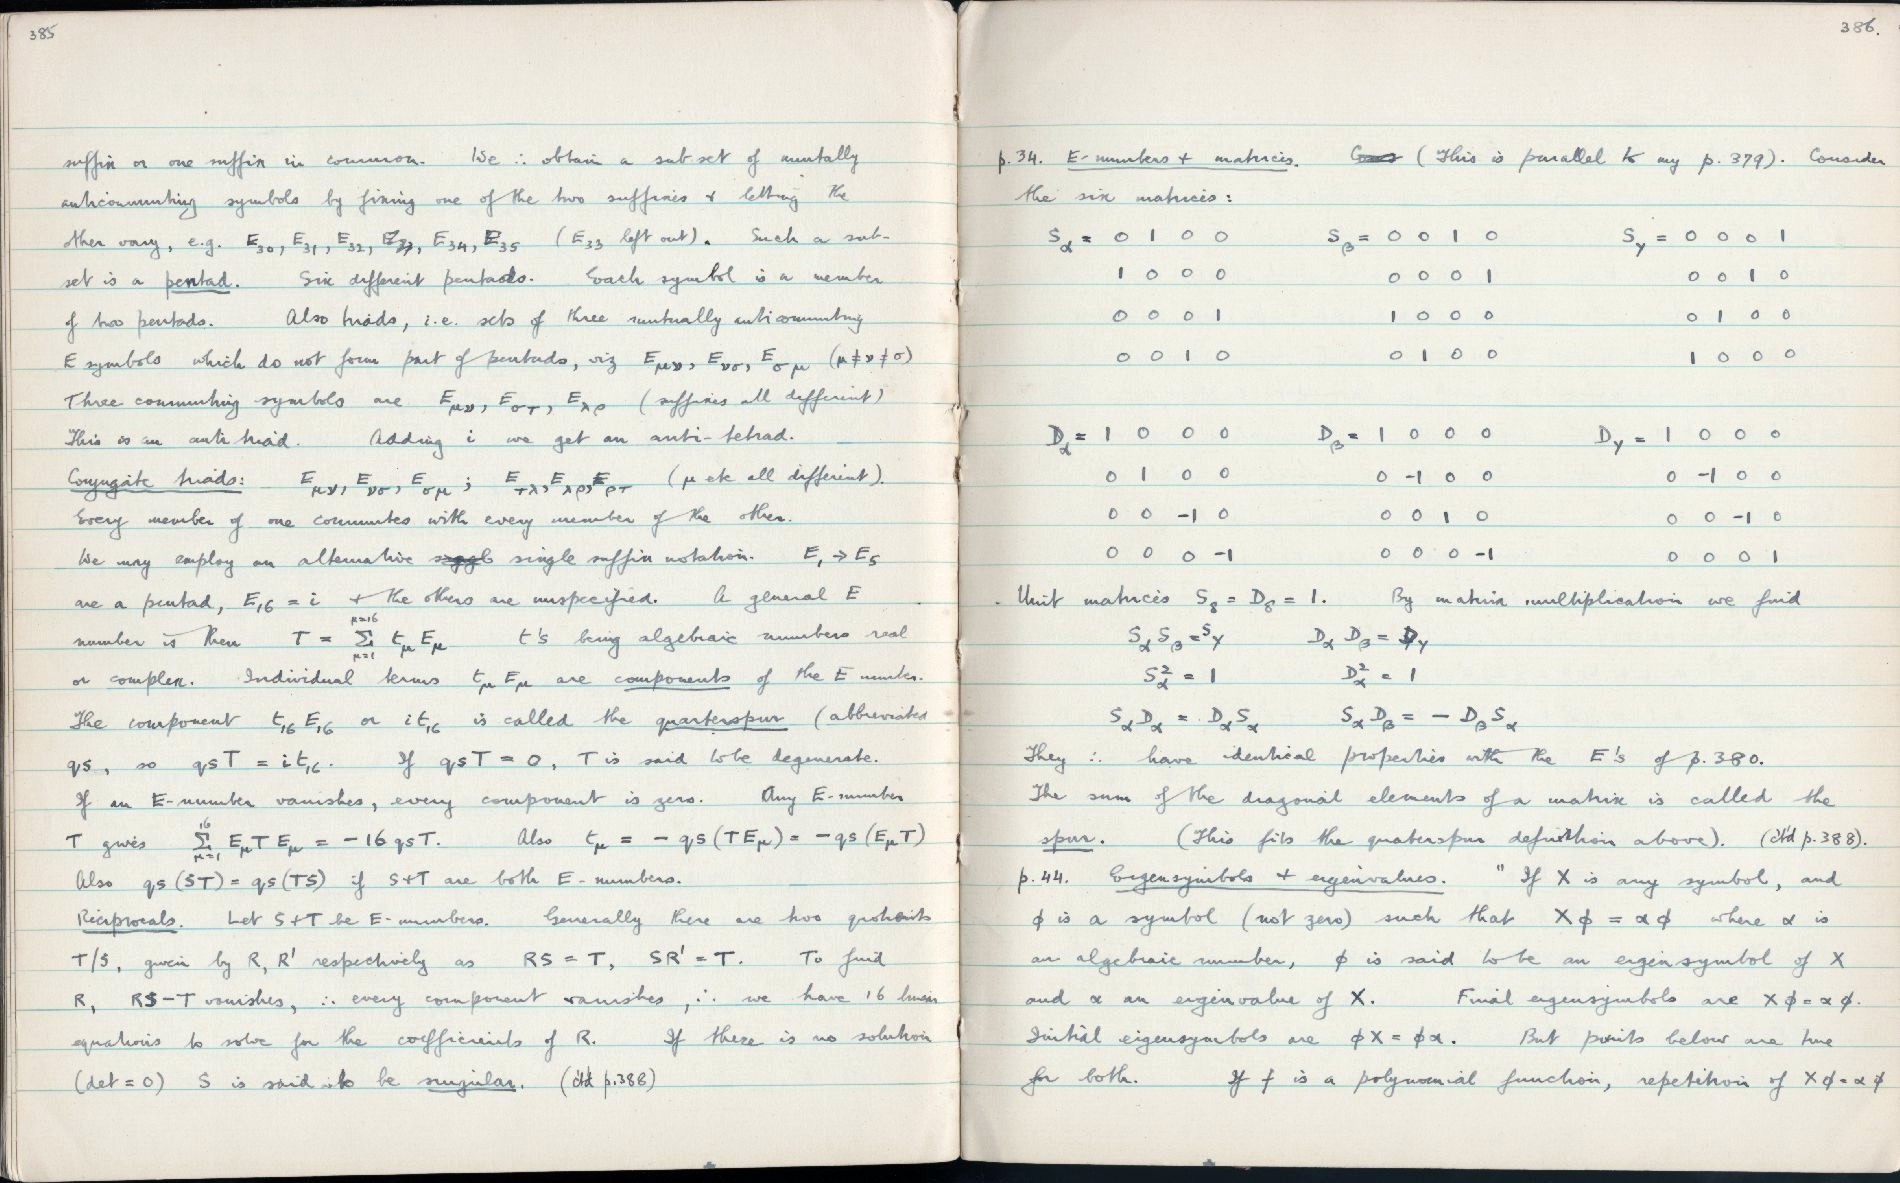 385
suffix or one suffix in common. We ∴ obtain a sub set of mutually
anticommuting symbols by fixing one of the two suffixes + letting the
other vary, e.g. E₃₀, E₃₁, E₃₂, E₃₄, E₃₅ (E₃₃ left out). Such a sub-
set is a pentad. Six different pentads. Each symbol is a member
of two pentads. Also triads, i.e. sets of three mutually anticommuting
E symbols which do not form part of pentads, viz E_μν, E_νσ, E_σμ (μ≠ν≠σ)
Three commuting symbols are E_μν, E_στ, E_λρ (suffixes all different)
This is an anti triad. Adding i we get an anti-tetrad.
Conjugate triads: E_μν, E_νσ, E_σμ ; E_τλ, E_λρ, E_ρτ (μ etc all different).
Every member of one commutes with every member of the other.
We may employ an alternative single suffix notation. E₁ → E₅
are a pentad, E₁₆ = i + the others are unspecified. A general E
number is then T = Σ_{μ=1}^{μ=16} t_μ E_μ t's being algebraic numbers real
or complex. Individual terms t_μ E_μ are components of the E number.
The component t₁₆ E₁₆ or i t₁₆ is called the quarterspur (abbreviated
qs, so qsT = i t₁₆. If qsT = 0, T is said to be degenerate.
If an E-number vanishes, every component is zero. Any E-number
T gives Σ_{μ=1}^{16} E_μ T E_μ = -16 qsT. Also t_μ = - qs (TE_μ) = - qs (E_μT)
Also qs (ST) = qs (TS) if S+T are both E-numbers.
Reciprocals. Let S+T be E-numbers. Generally there are two quotients
T/S, given by R, R' respectively as RS = T, SR' = T. To find
R, RS-T vanishes, ∴ every component vanishes, ∴ we have 16 linear
equations to solve for the coefficients of R. If there is no solution
(det = 0) S is said to be singular. (ctd p.388)
386.
p. 34. E-numbers + matrices. (This is parallel to my p. 379). Consider
the six matrices:
S_α = 0 1 0 0 S_β = 0 0 1 0 S_γ = 0 0 0 1
1 0 0 0 0 0 0 1 0 0 1 0
0 0 0 1 1 0 0 0 0 1 0 0
0 0 1 0 0 1 0 0 1 0 0 0
D_α = 1 0 0 0 D_β = 1 0 0 0 D_γ = 1 0 0 0
0 1 0 0 0 -1 0 0 0 -1 0 0
0 0 -1 0 0 0 1 0 0 0 -1 0
0 0 0 -1 0 0 0 -1 0 0 0 1
Unit matrices S_δ = D_δ = 1. By matrix multiplication we find
S_α S_β = S_γ D_α D_β = D_γ
S_α² = 1 D_α² = 1
S_α D_α = D_α S_α S_α D_β = - D_β S_α
They ∴ have identical properties with the E's of p. 380.
The sum of the diagonal elements of a matrix is called the
spur. (This fits the quaterspur definition above). (ctd p. 388).
p. 44. Eigensymbols + eigenvalues. "If X is any symbol, and
φ is a symbol (not zero) such that Xφ = αφ where α is
an algebraic number, φ is said to be an eigensymbol of X
and α an eigenvalue of X. Final eigensymbols are Xφ = αφ.
Initial eigensymbols are φX = φα. But points below are true
for both. If f is a polynomial function, repetition of Xφ = αφ